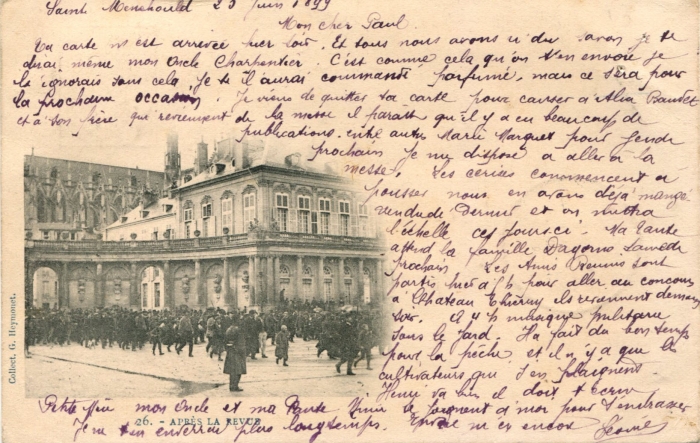 Saint Menehould 25 juin 1899
Mon cher Paul.
Ta carte m'est arrivée hier soir. Et tous nous avons ri du savon je te
dirai même mon Oncle Charpentier. C'est comme cela qu'on t'en envoie je
le ignorais sans cela, je te l'aurai commandé parfumé, mais ce sera pour
la prochaine occasion. Je viens de quitter ta carte pour causer à
et à son frère qui reviennent de la messe il paraît qu'il y a eu beaucoup de
publications, entre autre Marie Marquet pour jeudi
prochain je me dispose a aller a la
messe. Les cerises commencent a
pousser nous en avons déjà mangé
vendredi dernier et on mettra
l'échelle ces jours-ci. Ma Tante
attend la famille Samedi
prochain. Les Amis sont
partis hier à pour aller au concours
a Chateau Thierry ils reviennent demain
soir. il y a musique militaire
sous le Jard. Il fait du bon temps
pour la pêche, et il n'y a que les
cultivateurs qui s'en plaignent.
Henri va bien il doit t'écrire
Collect. G. Heymonet.
26. - APRÈS LA REVUE
Petite mon Oncle et ma Tante se joignent à moi pour t'embrasser
Je t'en enverrai plus longtemps. encore